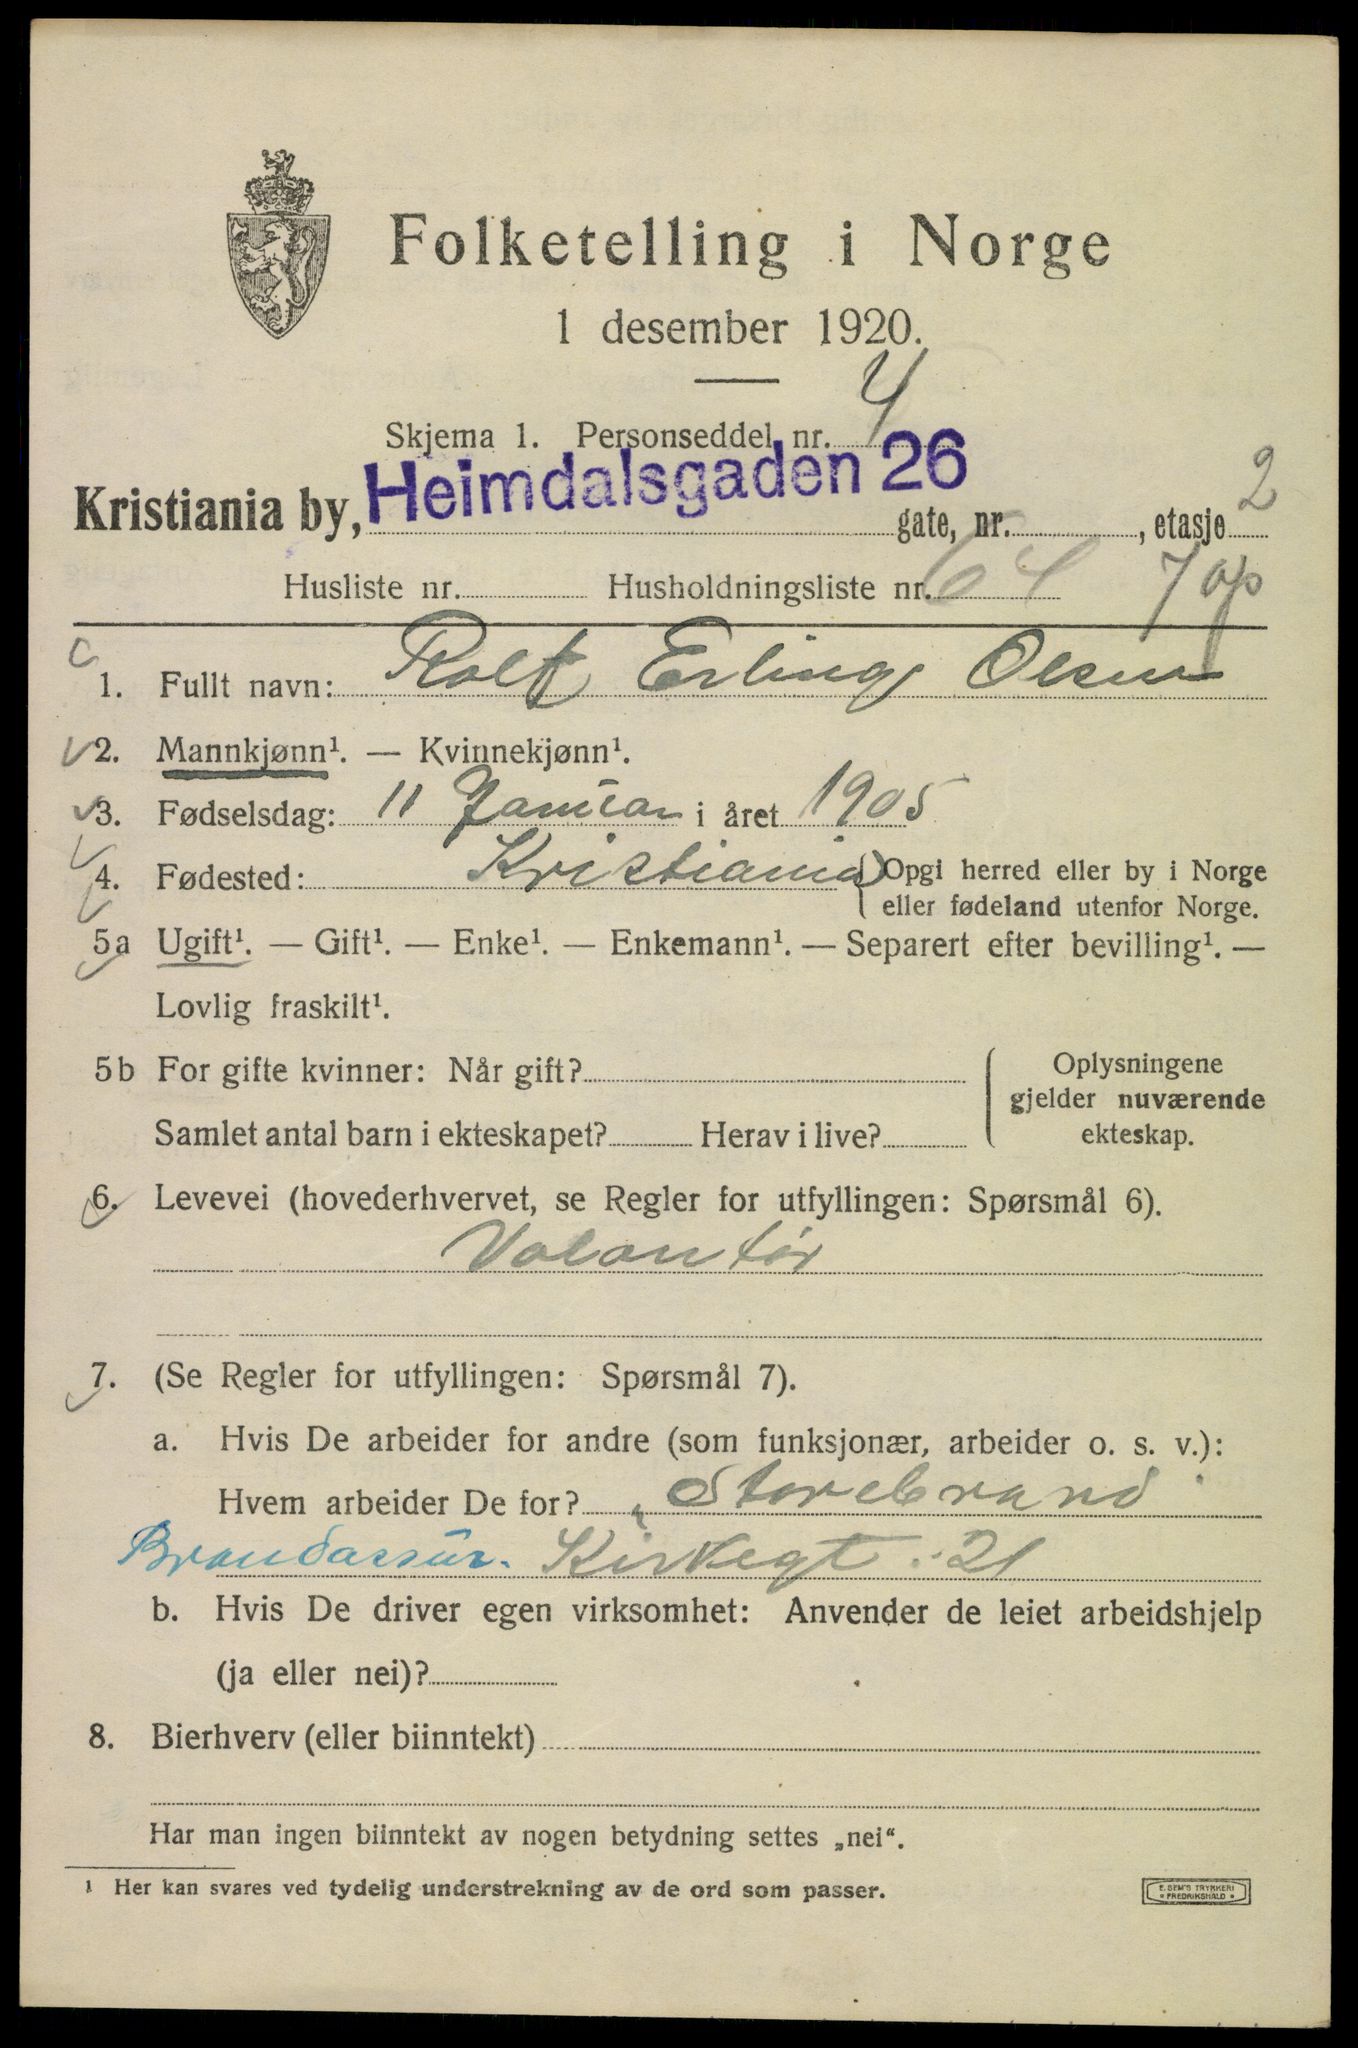 Folketelling i Norge
1 desember 1920.
Skjema 1. Personseddel nr. 4
Kristiania by, Heimdalsgaden 26 gate, nr. , etasje 2
Husliste nr. Husholdningsliste nr. 64 7 op
1. Fullt navn: Rolf Erling Olsen
2. Mannkjønn¹. — Kvinnekjønn¹.
3. Fødselsdag: 11 Januar i året 1905
4. Fødested: Kristiania Opgi herred eller by i Norge
eller fødeland utenfor Norge.
5a Ugift¹. — Gift¹. — Enke¹. — Enkemann¹. — Separert efter bevilling¹. —
Lovlig fraskilt¹.
5b For gifte kvinner: Når gift? Oplysningene
gjelder nuværende
Samlet antal barn i ekteskapet? Herav i live? ekteskap.
6. Levevei (hovederhvervet, se Regler for utfyllingen: Spørsmål 6).
Volontør
7. (Se Regler for utfyllingen: Spørsmål 7).
a. Hvis De arbeider for andre (som funksjonær, arbeider o. s. v.):
Hvem arbeider De for? „Storebrand
Brandassur. Kirkegt. 21
b. Hvis De driver egen virksomhet: Anvender de leiet arbeidshjelp
(ja eller nei)?
8. Bierhverv (eller biinntekt)
Har man ingen biinntekt av nogen betydning settes „nei“.
¹ Her kan svares ved tydelig understrekning av de ord som passer.
E. SEM'S TRYKKERI
FREDRIKSHALD